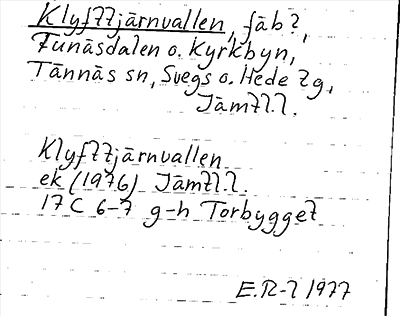 Klyfttjärnvallen, fäb?,
Funäsdalen o. Kyrkbyn,
Tännäs sn, Svegs o. Hede tg,
Jämtl.l.
Klyfttjärnvallen
ek (1976) Jämtl.l.
17C 6-7 g-h Torbygget
E.R-l 1977